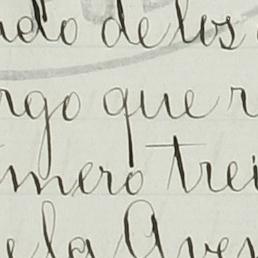 de los
rgo que
mero trei
e la Ave